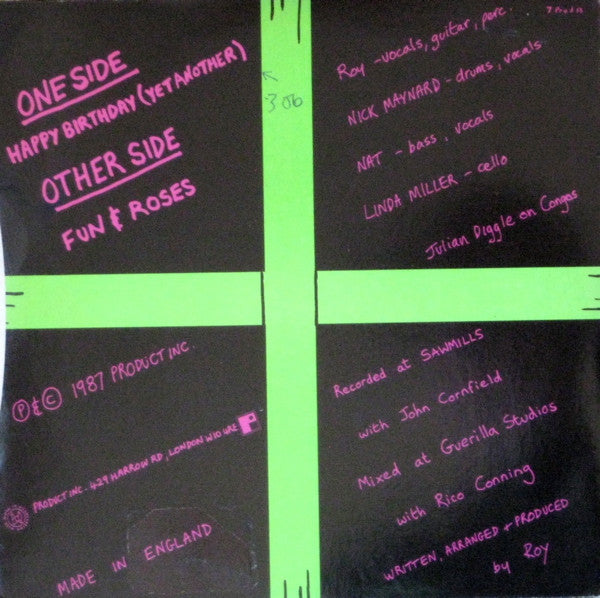 ONE SIDE
HAPPY BIRTHDAY (YET ANOTHER)
OTHER SIDE
FUN & ROSES
Roy - vocals, guitar, perc.
NICK MAYNARD - drums, vocals
NAT - bass, vocals
LINDA MILLER - cello
Julian Diggle on Congas
Ⓟ & © 1987 PRODUCT INC.
PRODUCT INC. 429 HARROW RD, LONDON W10 4RE
MADE IN ENGLAND
Recorded at SAWMILLS
with John Cornfield
Mixed at Guerilla Studios
with Rico Conning
WRITTEN, ARRANGED + PRODUCED
by Roy